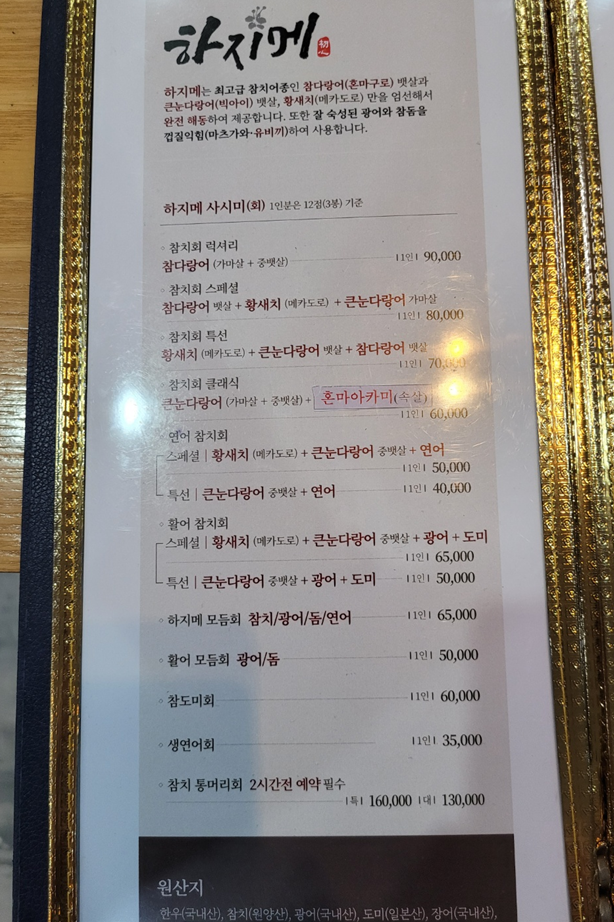 하지메
하지메는 최고급 참치어종인 참다랑어(혼마구로) 뱃살과
큰눈다랑어(빅아이) 뱃살, 황새치(메카도로) 만을 엄선해서
완전 해동하여 제공합니다. 또한 잘 숙성된 광어와 참돔을
껍질익힘(마츠가와·유비끼)하여 사용합니다.
하지메 사시미(회) 1인분은 12점(3봉) 기준
◦ 참치회 럭셔리
참다랑어 (가마살 + 중뱃살) |1인| 90,000
◦ 참치회 스페셜
참다랑어 뱃살 + 황새치 (메카도로) + 큰눈다랑어 가마살
|1인| 80,000
◦ 참치회 특선
황새치 (메카도로) + 큰눈다랑어 뱃살 + 참다랑어 뱃살
|1인| 70,000
◦ 참치회 클래식
큰눈다랑어 (가마살 + 중뱃살) + 혼마아카미(속살)
|1인| 60,000
연어 참치회
스페셜 | 황새치 (메카도로) + 큰눈다랑어 중뱃살 + 연어
|1인| 50,000
특선 | 큰눈다랑어 중뱃살 + 연어 |1인| 40,000
◦ 활어 참치회
스페셜 | 황새치 (메카도로) + 큰눈다랑어 중뱃살 + 광어 + 도미
|1인| 65,000
특선 | 큰눈다랑어 중뱃살 + 광어 + 도미 |1인| 50,000
◦ 하지메 모듬회 참치/광어/돔/연어 |1인| 65,000
◦ 활어 모듬회 광어/돔 |1인| 50,000
◦ 참도미회 |1인| 60,000
◦ 생연어회 |1인| 35,000
◦ 참치 통머리회 2시간전 예약 필수
|특| 160,000 |대| 130,000
원산지
한우(국내산), 참치(원양산), 광어(국내산), 도미(일본산), 장어(국내산),